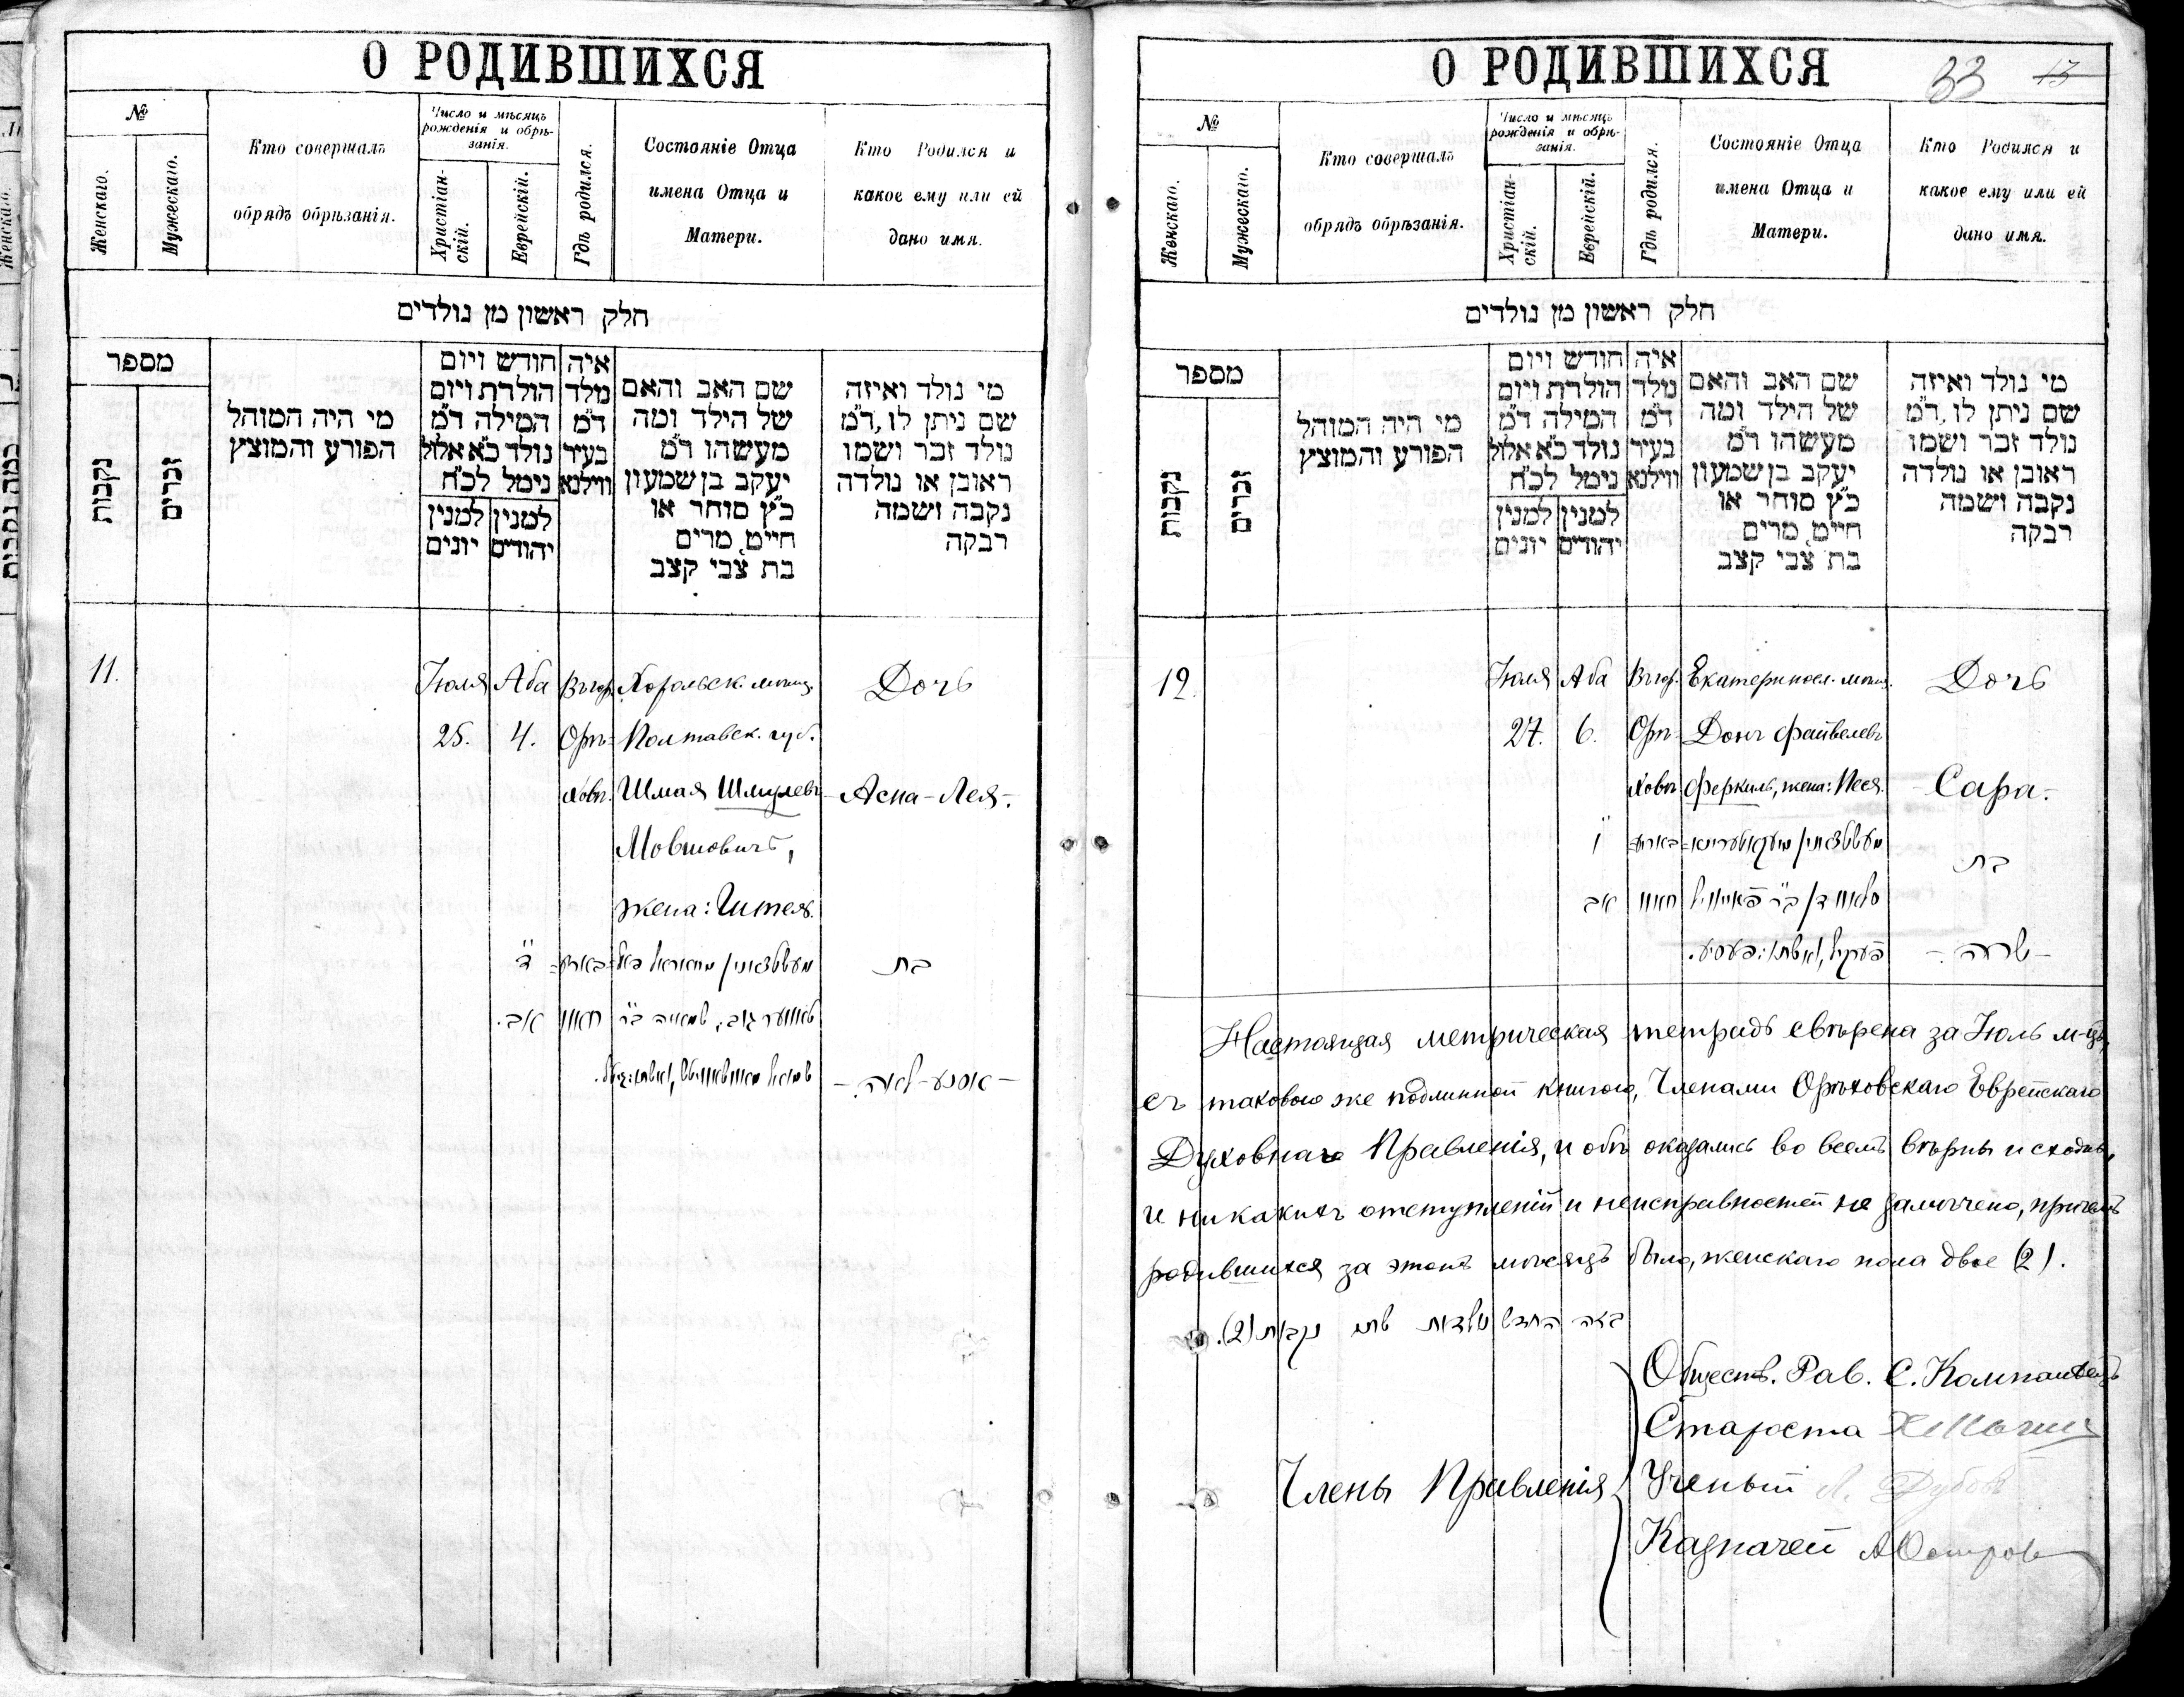 О РОДИВШИХСЯ
№
Женскаго.
Мужескаго.
Кто совершалъ
обрядъ обрѣзанія.
Число и мѣсяцъ
рожденія и обрѣ-
занія.
Христіан-
скій.
Еврейскій.
Гдѣ родился.
Состояніе Отца
имена Отца и
Матери.
Кто Родился и
какое ему или ей
дано имя.
חלק ראשון מן נולדים
מספר
נקבות
זכרים
מי היה המוהל
הפורע והמוצץ
חודש ויום
הולדת ויום
המילה ד״מ
נולד כ״א אלול
נימל לכ״ח
למנין יהודים
למנין יונים
איה
נולד
ד״מ
בעיר
ווילנא
שם האב והאם
של הילד ומה
מעשהו ד״מ
יעקב בן שמעון
כ״ץ סוחר או
חייט, מרים
בת צבי קצב
מי נולד ואיזה
שם ניתן לו, ד״מ
נולד זכר ושמו
ראובן או נולדה
נקבה ושמה
רבקה
11.
Іюля
25.
Аба
4.
Въ гор.
Орѣ-
ховѣ.
Хорольск. мѣщ.
Полтавск. губ.
Шмая Шмулевъ
Мовшовичъ,
жена: Гитель.
Дочь
Асна-Лея.-
ד׳
אב.
בת
- אסנע-לאה. -
О РОДИВШИХСЯ
33 13
№
Женскаго.
Мужескаго.
Кто совершалъ
обрядъ обрѣзанія.
Число и мѣсяцъ
рожденія и обрѣ-
занія.
Христіан-
скій.
Еврейскій.
Гдѣ родился.
Состояніе Отца
имена Отца и
Матери.
Кто Родился и
какое ему или ей
дано имя.
חלק ראשון מן נולדים
מספר
נקבות
זכרים
מי היה המוהל
הפורע והמוצץ
חודש ויום
הולדת ויום
המילה ד״מ
נולד כ״א אלול
נימל לכ״ח
למנין יהודים
למנין יונים
איה
נולד
ד״מ
בעיר
ווילנא
שם האב והאם
של הילד ומה
מעשהו ד״מ
יעקב בן שמעון
כ״ץ סוחר או
חייט, מרים
בת צבי קצב
מי נולד ואיזה
שם ניתן לו, ד״מ
נולד זכר ושמו
ראובן או נולדה
נקבה ושמה
רבקה
12.
Іюля
27.
Аба
6.
Въ гор.
Орѣ-
ховѣ
Екатериносл. мѣщ.
Донъ Файвелевъ
Феркиль, жена: Песя.
Дочь
Сара.-
ו׳
אב
בת
- שרה. -
Настоящая метрическая тетрадь свѣрена за Іюль м-цъ,
съ таковою же подлинной книгою, Членами Орѣховскаго Еврейскаго
Духовнаго Правленія, и обѣ оказались во всемъ вѣрны и сходны,
и никакихъ отступленій и неисправностей не замѣчено, причемъ
родившихся за этотъ мѣсяцъ было, женскаго пола двое (2).
בזה החדש נולדות שתי נקבות (2).
Члены Правленія
Обществ. Рав. С. Компанѣецъ
Староста
Ученый Л. Дубовъ
Казначей А Островъ